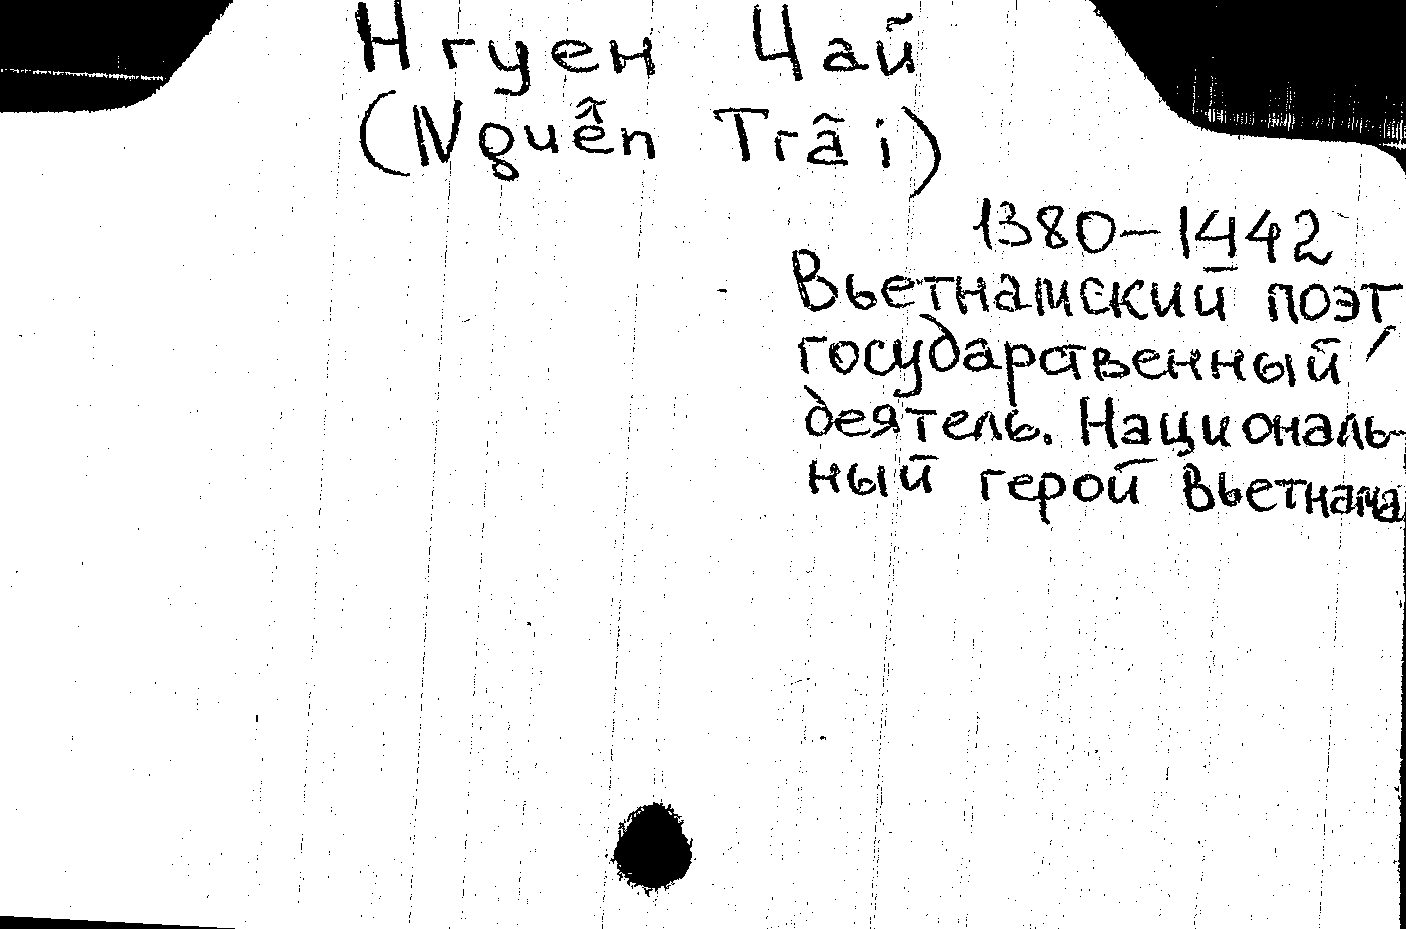 Нгуен Чай
(Nguễn Trãi)
1380–1442
Вьетнамский поэт,
государственный
деятель. Националь-
ный герой Вьетнама